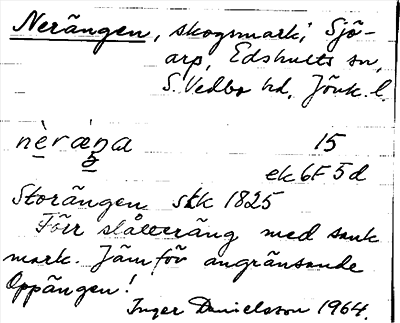 Nerängen, skogsmark; Sjö-
arp, Edshults sn,
S. Vedbo hd, Jönk. l.
nèræ̀ŋa 15
5
ek 6F 5d
Storängen stk 1825
Förr slåtteräng med sank
mark. Jämför angränsande
Oppängen!
Inger Danielsson 1964.